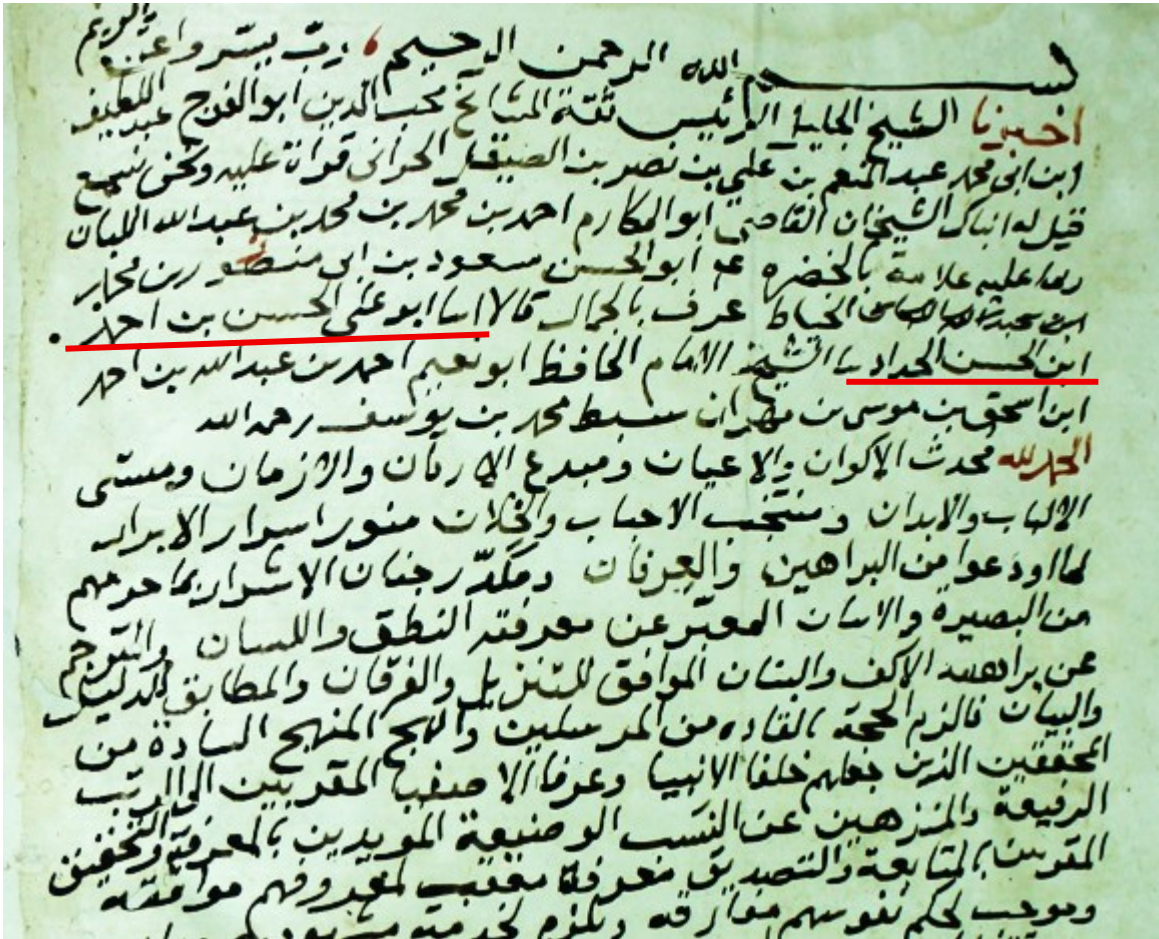 والعريم
بســـم الله الرحمن الرحيم، رب يسر واعن
اخبرنا الشيخ الجليل الرئيس ثقة المشايخ نجيب الدين ابو الفرج عبد اللطيف
ابن ابى محمد عبد المنعم بن علي بن نصر بن الصيقل الحرانى قراة عليه ونحن نسمع
قيل له انباك الشيخان القاضى ابو المكارم احمد بن محمد بن محمد بن عبد الله اللبان
عليه علامة بالخضره ابو الحسن مسعود بن ابى منصور بن محمد
ابن الخياط عرف بالجمال قالا انبا ابو على الحسن بن احمد
ابن الحسن الحداد نا الشيخ الامام الحافظ ابو نعيم احمد بن عبد الله بن احمد
ابن اسحق بن موسى بن مهران سبط محمد بن يوسف رحمه الله
الحمد لله محدث الاكوان والاعيان ومبدع الاركان والازمان ومنشى
الالباب والابدان ومنتخب الاحباب والخلان منور اسرار الابرار
بما اودعوا من البراهين والعرفان ومكدر جنان الاشرار بما حرمهم
من البصيره والايمان المعبر عن معرفته النطق واللسان والمترجم
عن براهينه الاكف والبنان الموافق للتنزيل والفرقان والمطابق للدليل
والبيان فالزم الحجة القاده من المرسلين وابهج المنهج السادة من
المحققين الذين جعلهم خلفا الانبيا وعرفا الاصفيا المقربين الى الرتب
الرفيعة والمنزهين عن النسب الوضيعة المويدين بالمعرفة والتحقيق
المقومين بالمتابعة والتصديق معرفة تعقب لمعروفهم موافقته
وتوجب لحكم نفوسهم مفارقه وتلزم لخدمة